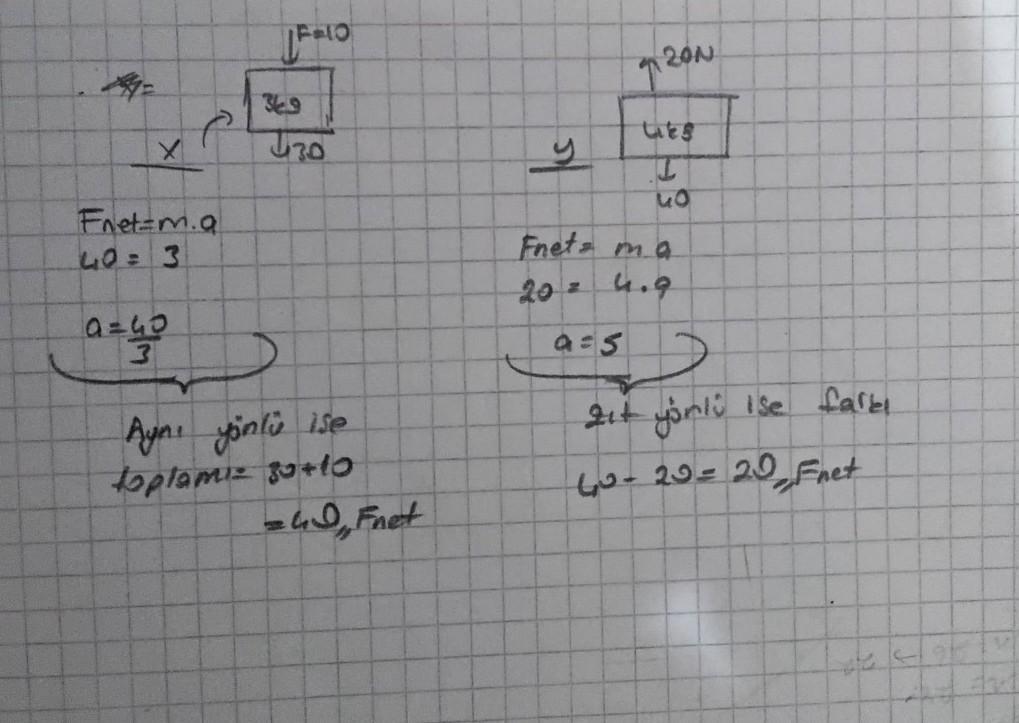 F=10
3kg
30
X
Fnet=m.a
40 = 3
a = 40/3
Aynı yönlü ise
toplamı= 30+10
= 40,, Fnet
20N
4kg
y
40
Fnet= m a
20 = 4.a
a = 5
Zıt yönlü ise farkı
40 - 20 = 20,, Fnet